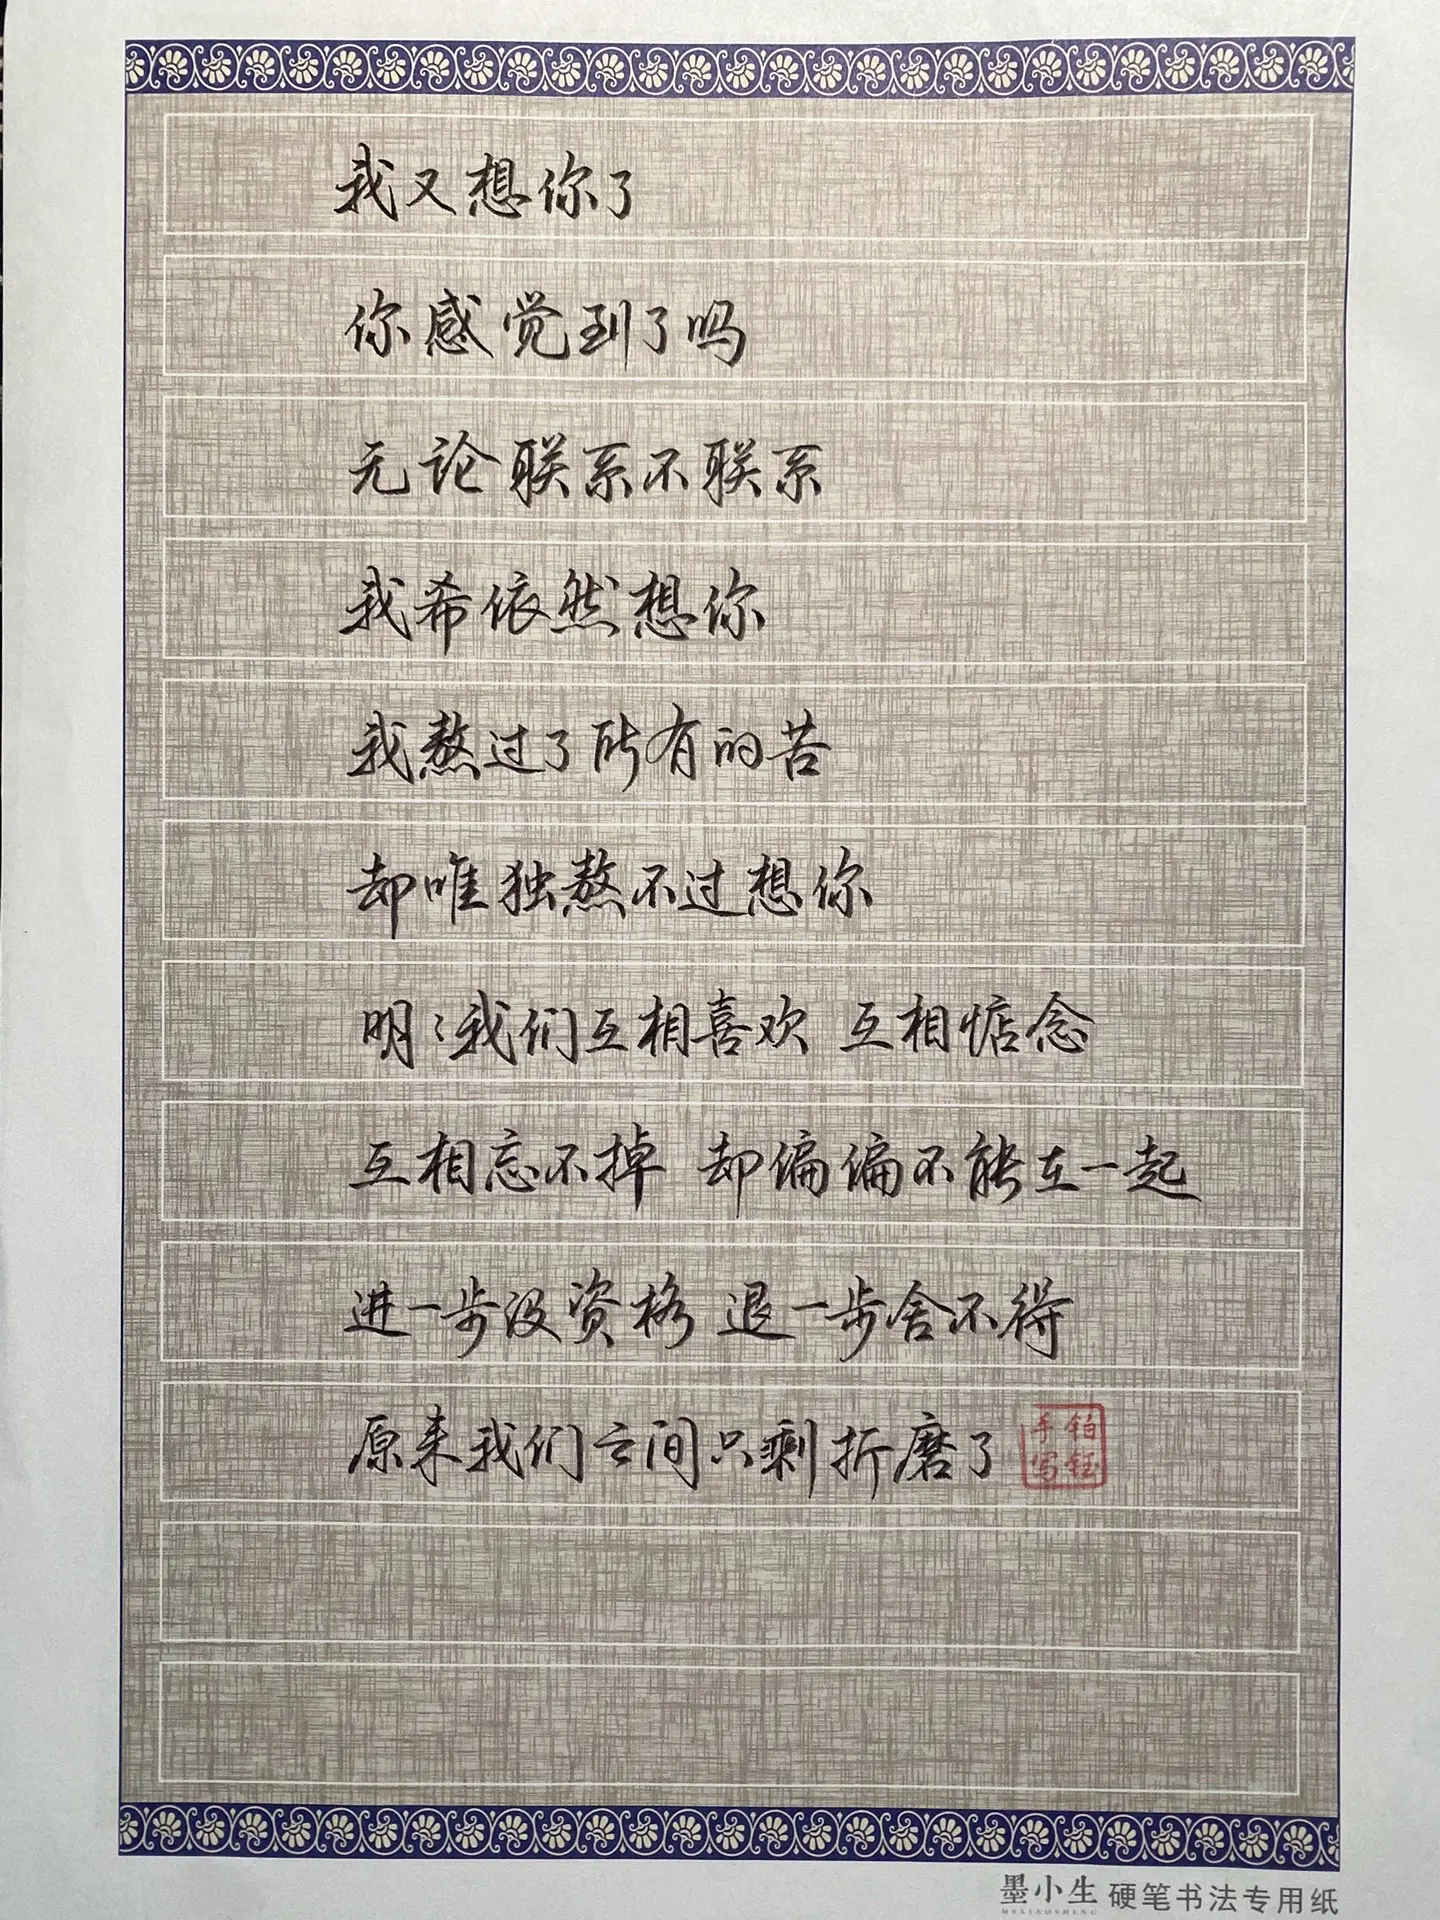 我又想你了
你感觉到了吗
无论联系不联系
我希依然想你
我熬过了所有的苦
却唯独熬不过想你
明明我们互相喜欢 互相惦念
互相忘不掉 却偏偏不能在一起
进一步没资格 退一步舍不得
原来我们之间只剩折磨了
铂钰手写
墨小生 硬笔书法专用纸
MOXIAOSHENG